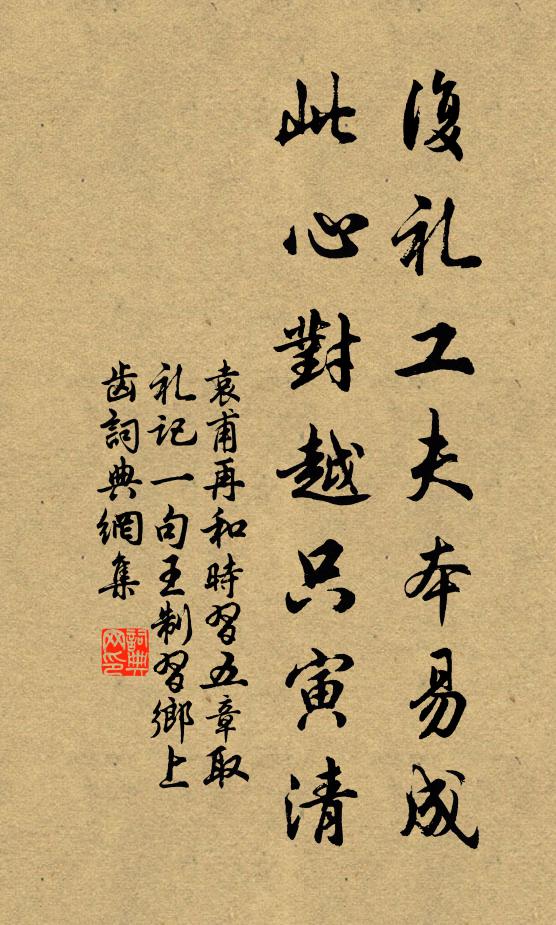 復礼工夫本易成
此心對越只寅清
袁甫再和時習五章取
礼記一句王制習鄉上
齿詞典網集
詞典网印